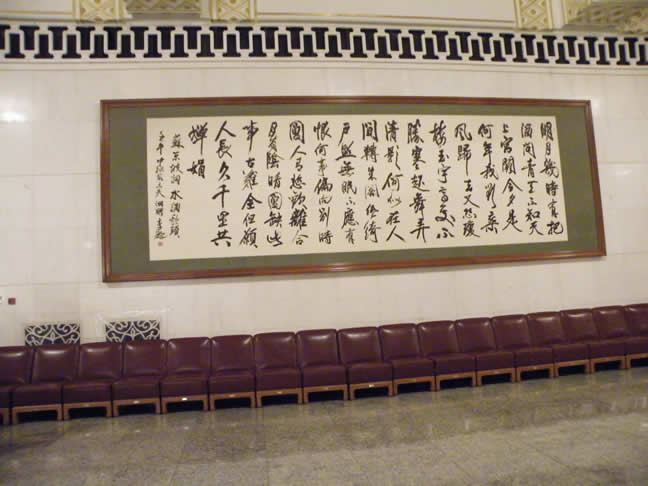 明月幾時有把
酒问青天不知天
上宫阙今夕是
何年我欲乘
风归去又恐瓊
楼玉宇高处不
勝寒起舞弄
清影何似在人
间轉朱阁低绮
户照無眠不應有
恨何事偏向别時
圆人有悲歡離合
月有陰晴圆缺此
事古難全但願
人長久千里共
嬋娟
蘇东坡词水调歌頭